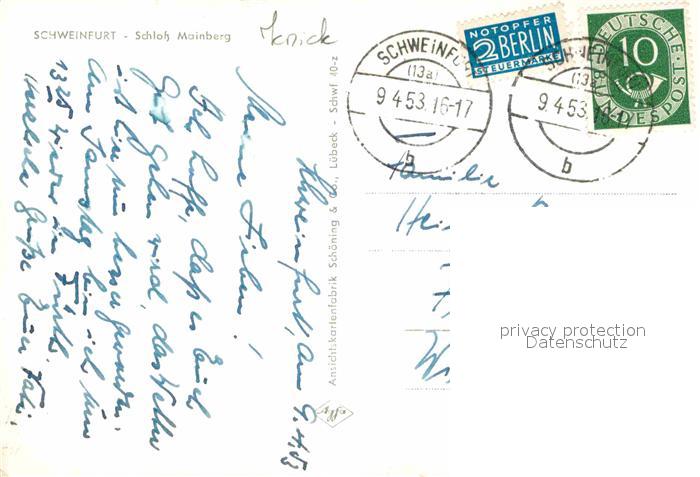 SCHWEINFURT - Schloß Mainberg
Knick
Schweinfurt, am 9.4.53
Meine Lieben!
Ich hoffe, daß es Euch
gut gehen wird, das Wetter
ist hier nun besser geworden.
Am Samstag bin ich um
13 25 wieder in
Grüße Euer
Ansichtskartenfabrik Schöning & Co., Lübeck - Schwf 40-z
NOTOPFER
2 BERLIN
STEUERMARKE
DEUTSCHE
10
BUNDESPOST
SCHWEINFURT
(13a)
9.4.53.16-17
b
SCHWEINFURT
(13a)
9.4.53.16-17
b
Familie
Hei
privacy protection
Datenschutz